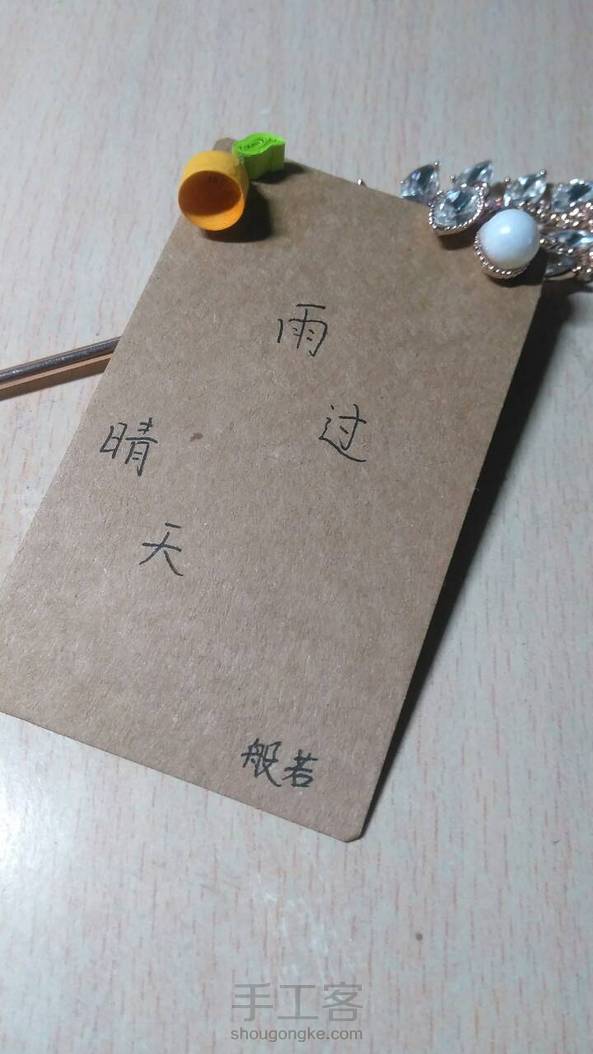 雨过
晴天
般若
手工客
shougongke.com